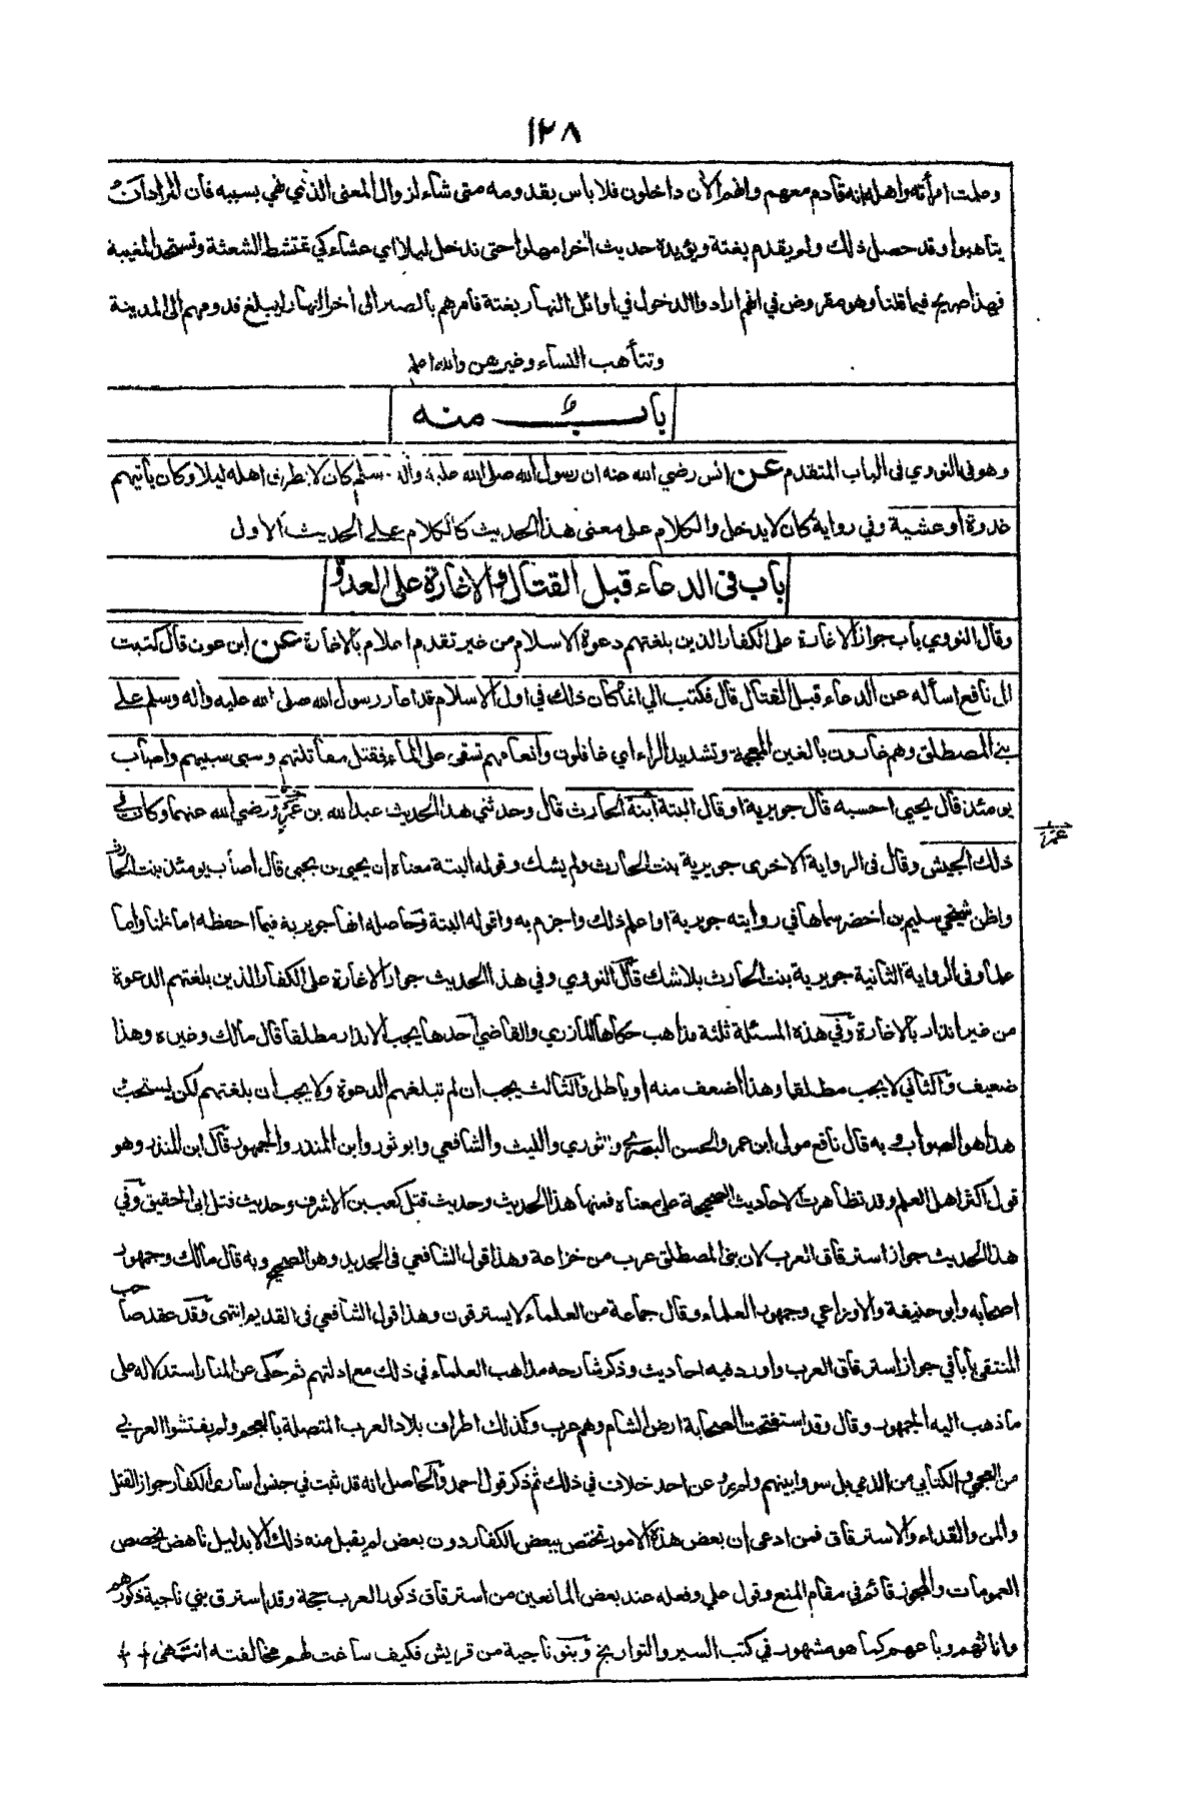 ١٢٨
وعلمت امرأته واهله انه قادم معهم وانهم الآن داخلون فلا باس بقدومه متى شاء لزوال المعنى الذي نهي بسببه فان المراد ان
يتاهبوا وقد حصل ذلك ولم يقدم بغتة ويؤيده حديث اخر امهلوا حتى ندخل ليلا اي عشاء كي تمتشط الشعثة وتستحد المغيبة
فهذا صريح فيما قلنا وهو مفروض في انهم ارادوا الدخول في اوائل النهار بغتة فامرهم بالصبر الى اخر النهار ليبلغ قدومهم الى المدينة
وتتأهب النساء وغيرهن والله اعلم
باب منه
وهو في النووي في الباب المتقدم عن انس رضي الله عنه ان رسول الله صلى الله عليه واله وسلم كان لا يطرق اهله ليلا وكان يأتيهم
غدوة او عشية وفي رواية كان لا يدخل والكلام على معنى هذا الحديث كالكلام على الحديث الاول
باب في الدعاء قبل القتال والاغارة على العدو
وقال النووي باب جواز الاغارة على الكفار الذين بلغتهم دعوة الاسلام من غير تقدم اعلام بالاغارة عن ابن عون قال كتبت
الى نافع اسأله عن الدعاء قبل القتال قال فكتب الي انما كان ذلك في اول الاسلام قد اغار رسول الله صلى الله عليه واله وسلم على
بني المصطلق وهم غارون بالغين المعجمة وتشديد الراء اي غافلون وانعامهم تسقى على الماء فقتل مقاتلتهم وسبى سبيهم واصاب
يومئذ قال يحيى احسبه قال جويرية او قال البتة ابنة الحارث قال وحدثني هذا الحديث عبد الله بن عمر رضي الله عنهما وكان في
عمر
ذلك الجيش وقال في الرواية الاخرى جويرية بنت الحارث ولم يشك وقوله البتة معناه ان يحيى بن يحيى قال اصاب يومئذ بنت الحارث
واظن شيخي سليم بن اخضر سماها في روايته جويرية او اعلم ذلك واجزم به واقوله البتة وحاصله انها جويرية فيما احفظه اما ظنا واما
علما وفي الرواية الثانية جويرية بنت الحارث بلا شك قال النووي وفي هذا الحديث جواز الاغارة على الكفار الذين بلغتهم الدعوة
من غير انذار بالاغارة وفي هذه المسئلة ثلثة مذاهب حكاها المازري والقاضي احدها يجب الانذار مطلقا قال مالك وغيره وهذا
ضعيف والثاني لا يجب مطلقا وهذا اضعف منه او باطل والثالث يجب ان لم تبلغهم الدعوة ولا يجب ان بلغتهم لكن يستحب
هذا هو الصواب وبه قال نافع مولى ابن عمر والحسن البصري والثوري والليث والشافعي وابو ثور وابن المنذر والجمهور قال ابن المنذر وهو
قول اكثر اهل العلم وقد تظاهرت الاحاديث الصحيحة على معناه فمنها هذا الحديث وحديث قتل كعب بن الاشرف وحديث قتل ابن ابي الحقيق وفي
هذا الحديث جواز استرقاق العرب لان بني المصطلق عرب من خزاعة وهذا قول الشافعي في الجديد وهو الصحيح وبه قال مالك وجمهور
اصحابه وابو حنيفة والاوزاعي وجمهور العلماء وقال جماعة من العلماء لا يسترقون وهذا قول الشافعي في القديم انتهى وقد عقد صاحب
المنتقى بابا في جواز استرقاق العرب واورد فيه احاديث وذكر شارحه مذاهب العلماء في ذلك مع ادلتهم ثم حكى عن المنار استدلاله على
ما ذهب اليه الجمهور وقال وقد استفتحت الصحابة ارض الشام وهم عرب وكذلك اطراف بلاد العرب المتصلة بالعجم ولم يفتشوا العربي
من العجمي والكتابي من الامي بل سووا بينهم ولم يرو عن احد خلاف في ذلك ثم ذكر قول احمد والحاصل انه قد ثبت في جنس اسارى الكفار جواز القتل
والمن والفداء والاسترقاق فمن ادعى ان بعض هذه الامور تختص ببعض الكفار دون بعض لم يقبل منه ذلك الا بدليل ناهض يخصص
العمومات والمجوز قائم في مقام المنع وقول علي وفعله عند بعض المانعين من استرقاق ذكور العرب حجة وقد استرق بني ناجية ذكورهم
واناثهم وباعهم كما هو مشهور في كتب السير والتواريخ وبنو ناجية من قريش فكيف ساغت لهم مخالفته انتهى